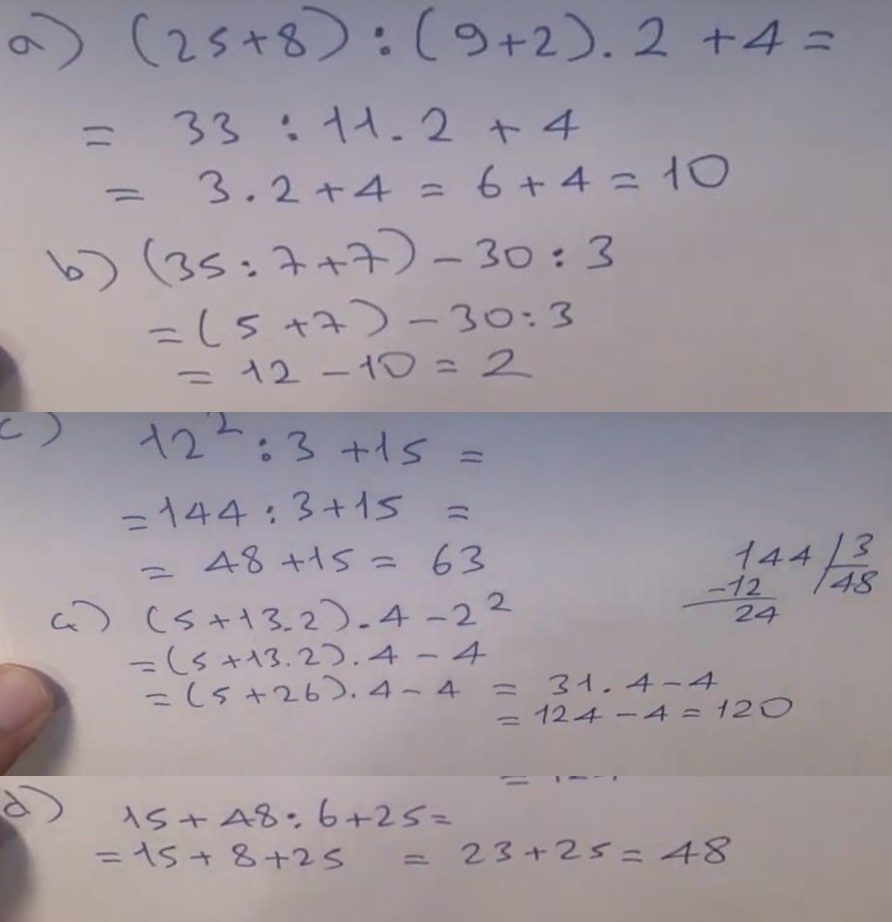 a) (25+8) : (9+2) . 2 + 4 =
= 33 : 11 . 2 + 4
= 3 . 2 + 4 = 6 + 4 = 10
b) (35 : 7 + 7) - 30 : 3
= (5 + 7) - 30 : 3
= 12 - 10 = 2
c) 12² : 3 + 15 =
= 144 : 3 + 15 =
= 48 + 15 = 63
144 / 3
-12 48
24
ç) (5 + 13 . 2) . 4 - 2²
= (5 + 13 . 2) . 4 - 4
= (5 + 26) . 4 - 4 = 31 . 4 - 4
= 124 - 4 = 120
d) 15 + 48 : 6 + 25 =
= 15 + 8 + 25 = 23 + 25 = 48